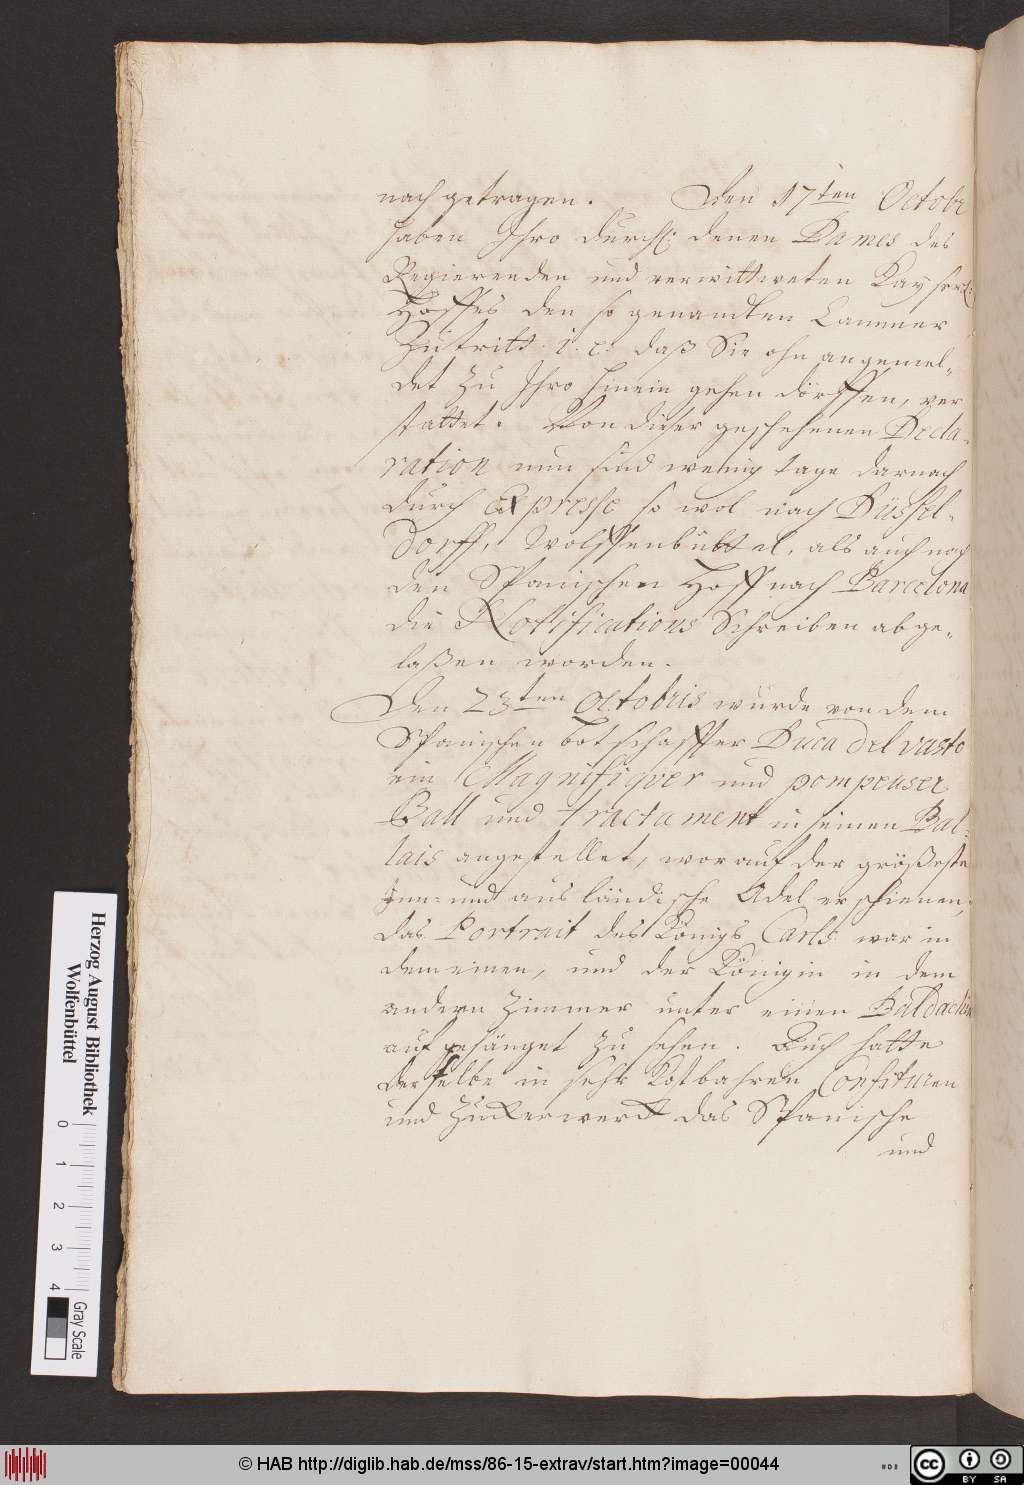 nach getragen. Den 17ten Octobr
haben Ihro Durchl: denen Dames des
Regierenden und verwittweten Kayserl:
Hoffes den so genandten Cammer
Zutritt i. e: daß Sie ohn angemel-
det zu Ihro hinein gehen dörffen, ver
stattet. Von dieser geschehenen Decla-
ration nun sind wenig tage darnach
durch Expresse so wol nach Düssel-
dorff, Wolffenbüttel, als auch nach
den Spanischen Hoff nach Barcelona
die Notifications Schreiben abge-
laßen worden.
Den 23ten Octobris wurde von dem
Spanischen botschaffter Duca del vasto
ein Magnifiqver und pompeuser
Ball und tractament in seinen Pal-
lais angestellet, worauf der größeste
Inn- und ausländische Adel erschienen,
das Portrait des Königs Carls war in
dem einen, und der Königin in dem
andern Zimmer unter einen Baldachin
aufgehänget zu sehen. Auch hatte
derselbe in sehr Kostbahren Confituren
und Zuckerwerck das Spanische
und
Herzog August Bibliothek
Wolfenbüttel
0 1 2 3 4
Gray Scale
© HAB http://diglib.hab.de/mss/86-15-extrav/start.htm?image=00044
cc BY SA